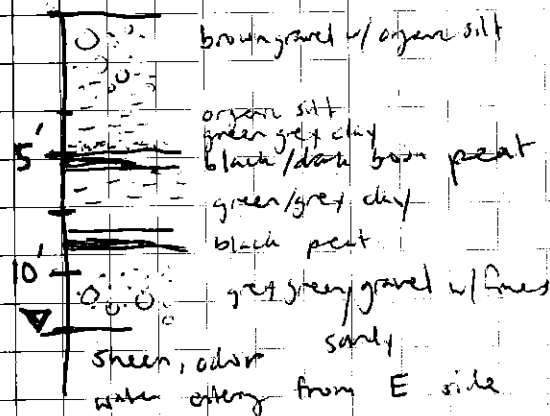 brown gravel w/ organic silt
organic silt
green grey clay
5' black/dark brown peat
green/grey clay
black peat
10' grey green/gravel w/ fines
sandy
sheen, odor
water entering from E side